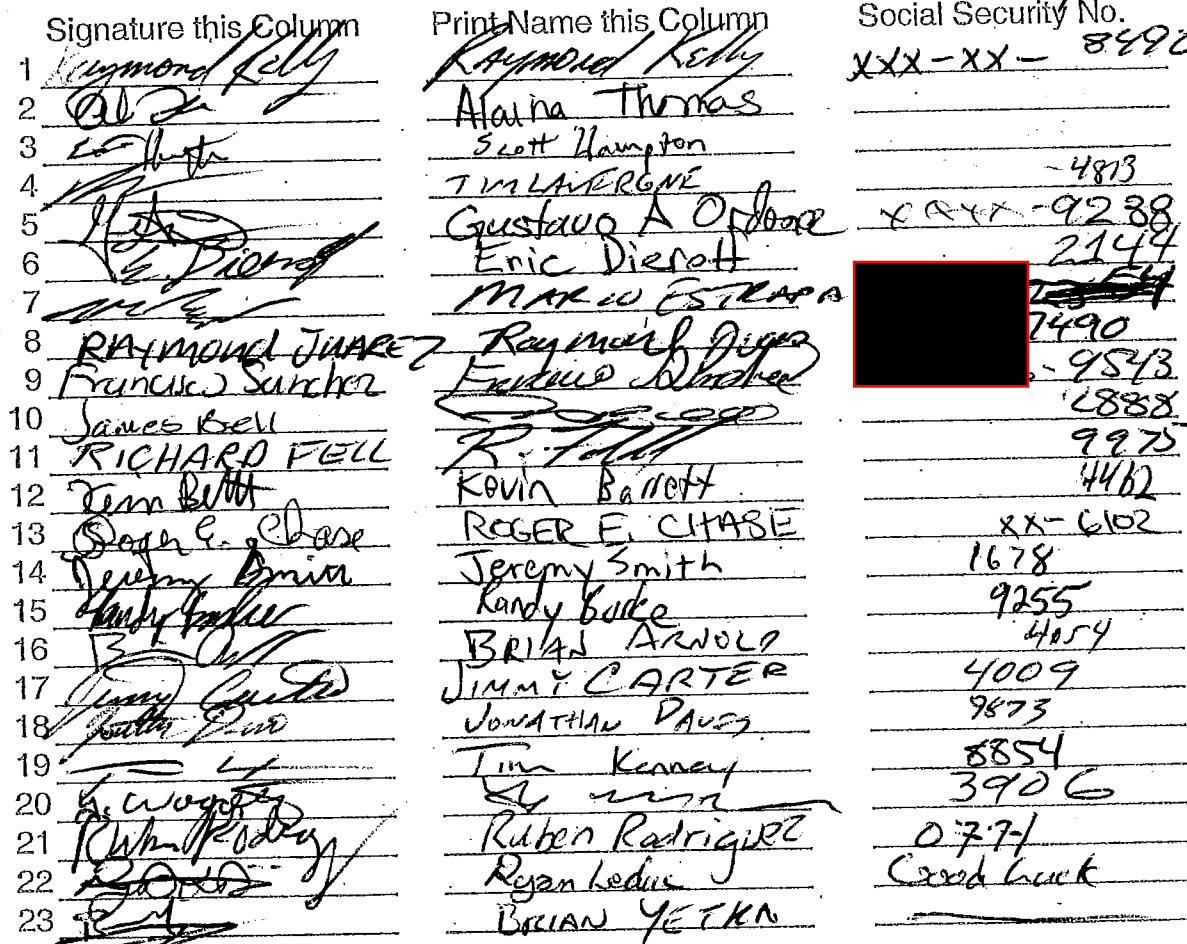 Signature this Column Print Name this Column Social Security No.
1 Raymond Kelly Raymond Kelly xxx-xx- 8492
2 Alaina Thomas
3 Scott Hampton
4 TIM LAVERGNE -4813
5 Gustavo A -9288
6 E. Dierott Eric Dierott 2144
7 MARCO ESTRADA
8 RAYMOND JUAREZ Raymond Juarez 7490
9 Francisco Sanchez -9543
10 James Bell 2888
11 RICHARD FELL R. Fell 9975
12 Kevin Barrett 4462
13 Roger E. Chase ROGER E. CHASE xx- 6102
14 Jeremy Smith Jeremy Smith 1678
15 Randy Randy 9255
16 BRIAN ARNOLD 4054
17 Jimmy Carter JIMMY CARTER 4009
18 JONATHAN 9873
19 Tim Kenney 8854
20 3906
21 Ruben Rodriguez 0771
22 Ryan Leduc Good Luck
23 BRIAN